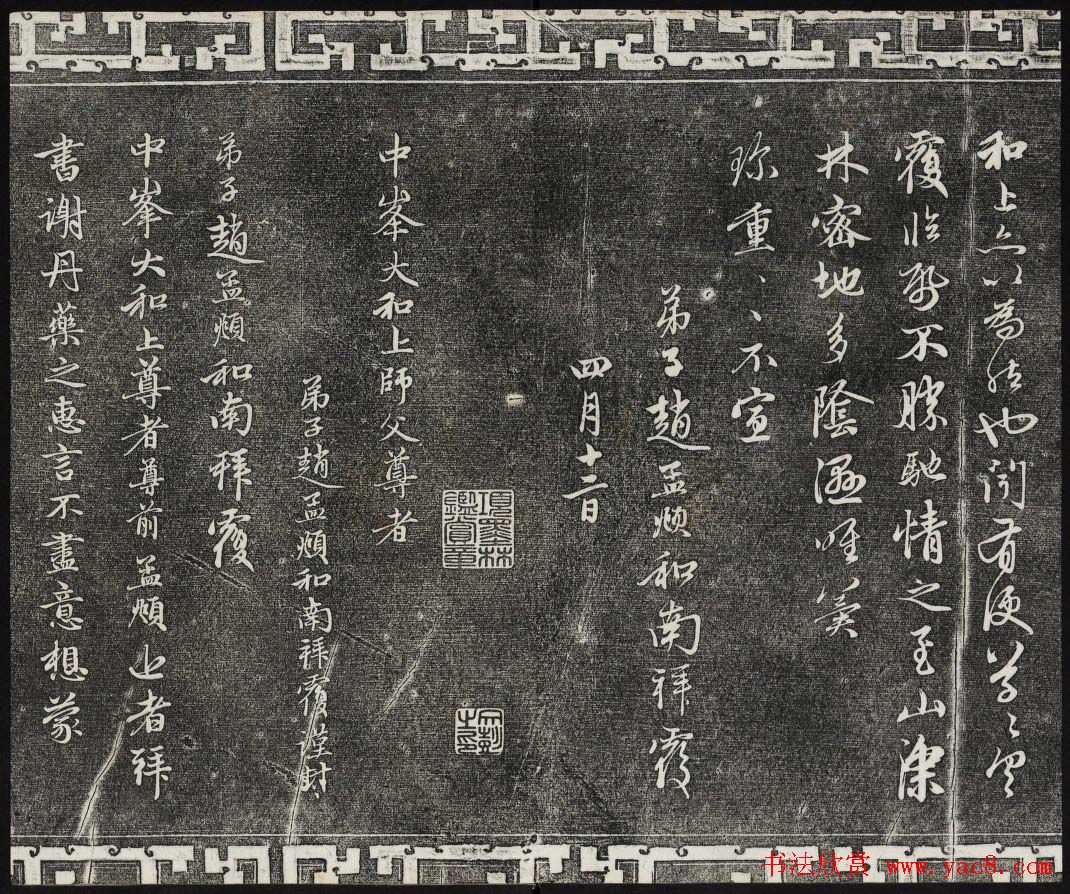 和上亦以为然也閒有便草草具
覆临纸不勝馳情之至山深
林密地多陰湿唯冀
珎重、、不宣
弟子趙孟頫和南拜覆
四月十三日
項墨林鑑賞章
中峯大和上師父尊者
弟子趙孟頫和南拜覆謹封
弟子趙孟頫和南拜覆
中峯大和上尊者尊前孟頫近者拜
書謝丹藥之惠言不盡意想蒙
书法欣赏 www.yac8.com